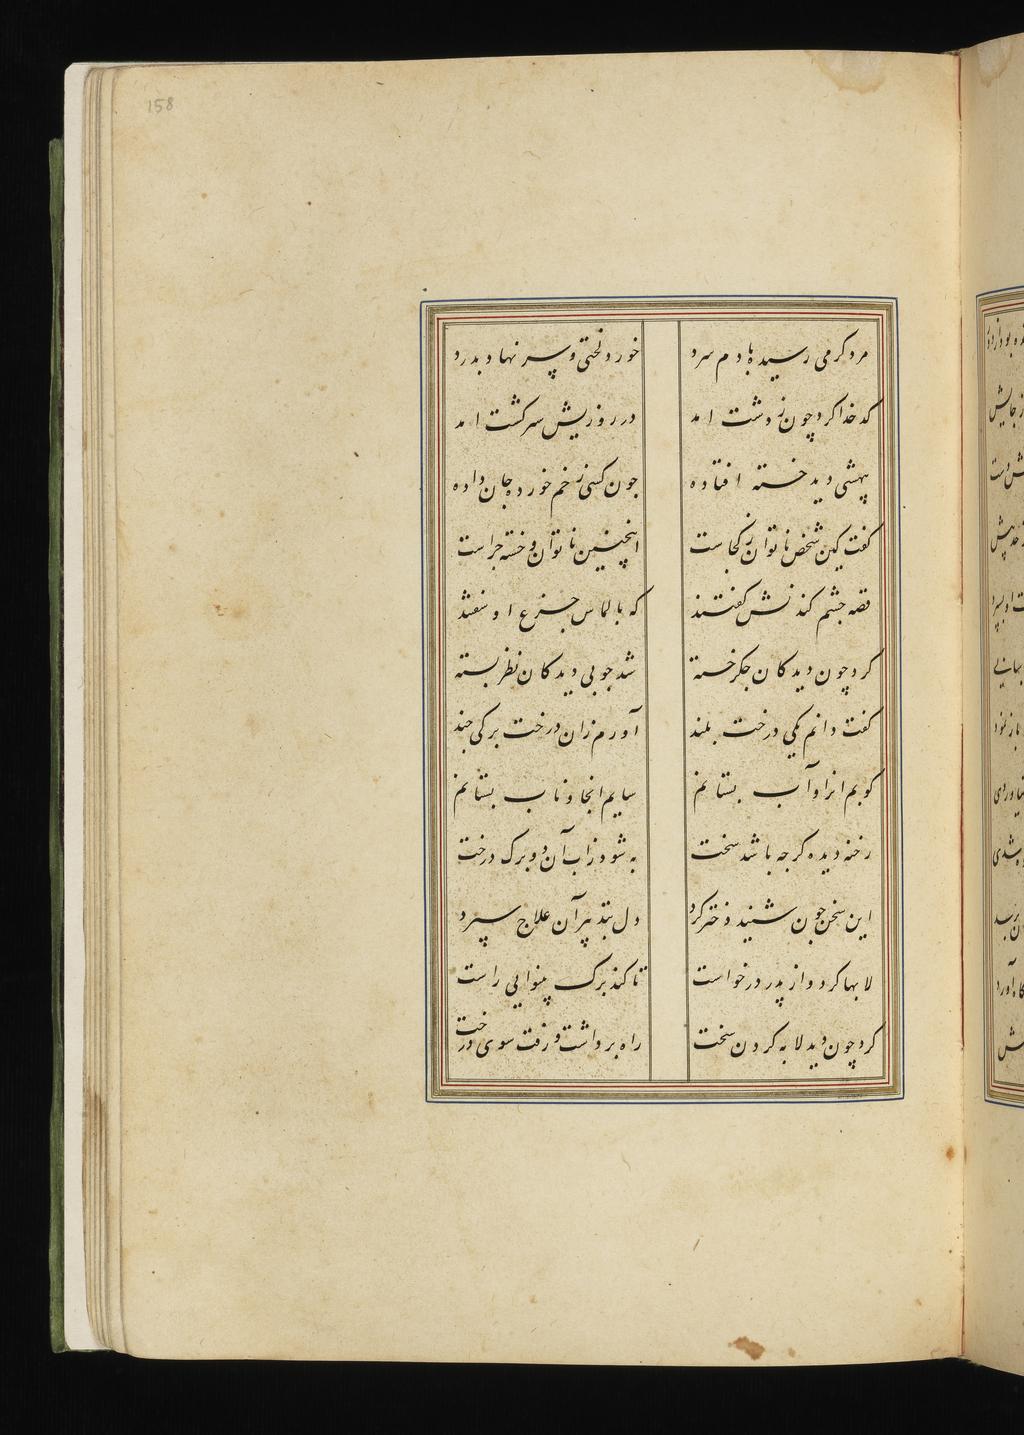 158
مرد گرمی رسیده با دم سرد
خورد لختی و سر نهاد بدرد
کدخدا کرد چون ز دشت امد
در روزیش سرگشت امد
بیهشی دید خسته افتاده
چون کسی زخم خورده جان داده
گفت کین شخص ناتوان ز کجاست
اینچنین ناتوان و خسته چراست
قصه چشم کندنش گفتند
که بالماس جزع او سفتند
کرد چون دید کان جگر خسته
شد چو بی دیدگان نظر بسته
گفت دانم یکی درخت بلند
آورم زان درخت برگی چند
کوبم انرا و آب بستانم
سایم انجا و تاب بستانم
رخنه دیده گرچه باشد سخت
به شود ز آب آن دو برگ درخت
این سخن چون شنید دختر کرد
دل بتدبیر آن علاج سپرد
لابها کرد و از پدر درخواست
تا کند برگ بینوایی راست
کرد چون دید لابه کردن سخت
راه برداشت و رفت سوی درخت